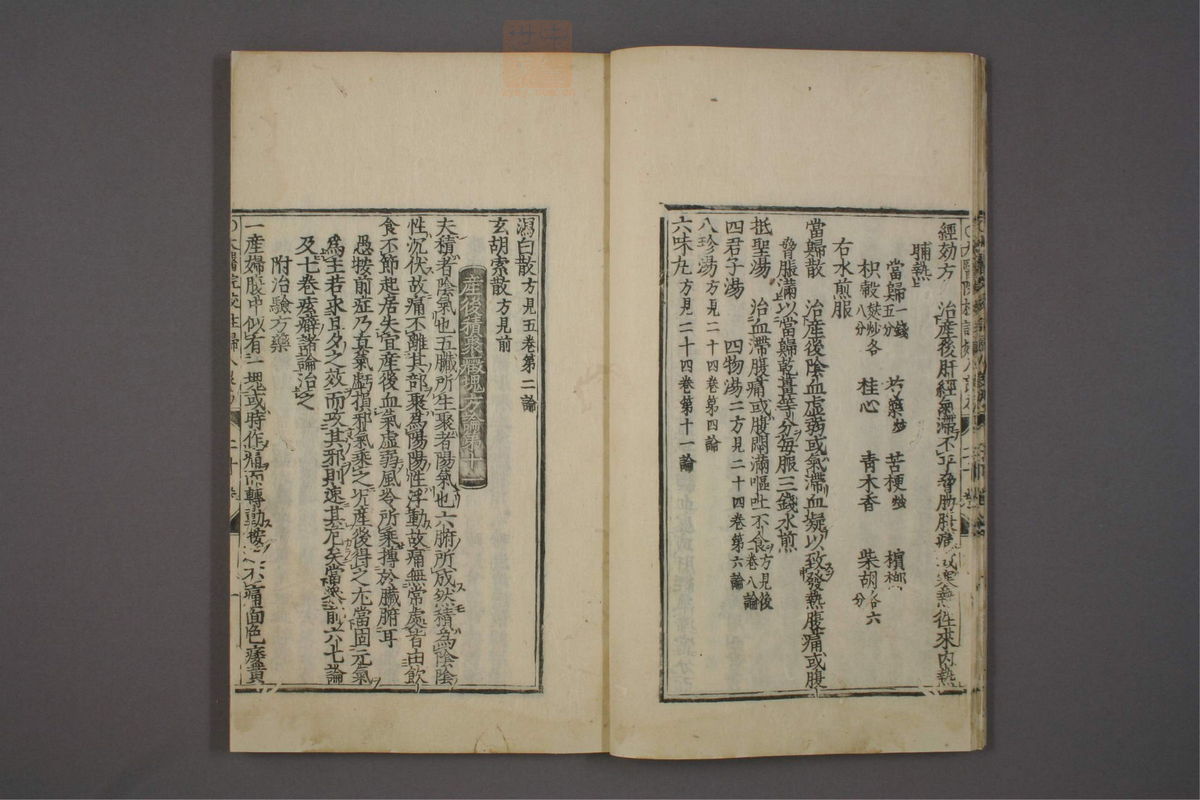 經効方 治產後肝經氣滯不平脅肋脹痛或寒熱徃來內熱
晡熱
當歸一錢五分 芍藥炒 苦梗炒 檳榔
枳穀麩炒各八分 桂心 青木香 柴胡各六分
右水煎服
當歸散 治產後陰血虛弱或氣滯血凝以致發熱腹痛或腹
脅脹滿以當歸乾薑等分每服三錢水煎
抵聖湯 治血滯腹痛或腹悶滿嘔吐不食方見後卷八論
四君子湯 四物湯二方見二十四卷第六論
八珍湯方見二十四卷第四論
六味丸方見二十四卷第十一論
瀉白散方見五卷第二論
玄胡索散方見前
產後積聚癥塊方論第十
夫積者陰氣也五臟所生聚者陽氣也六腑所成然積為陰陰
性沉伏故痛不離其部聚為陽陽性浮動故痛無常處皆由飲
食不節起居失宜產後血氣虛弱風冷所乘搏於臟腑耳
愚按前症乃真氣虧損邪氣乘之况產後得之尤當固元氣
為主若求旦夕之效而攻其邪則速其危矣當參前六七論
及七卷痃癖諸論治之
附治驗方藥
一產婦腹中似有一塊或時作痛而轉動按之不痛面色痿黃